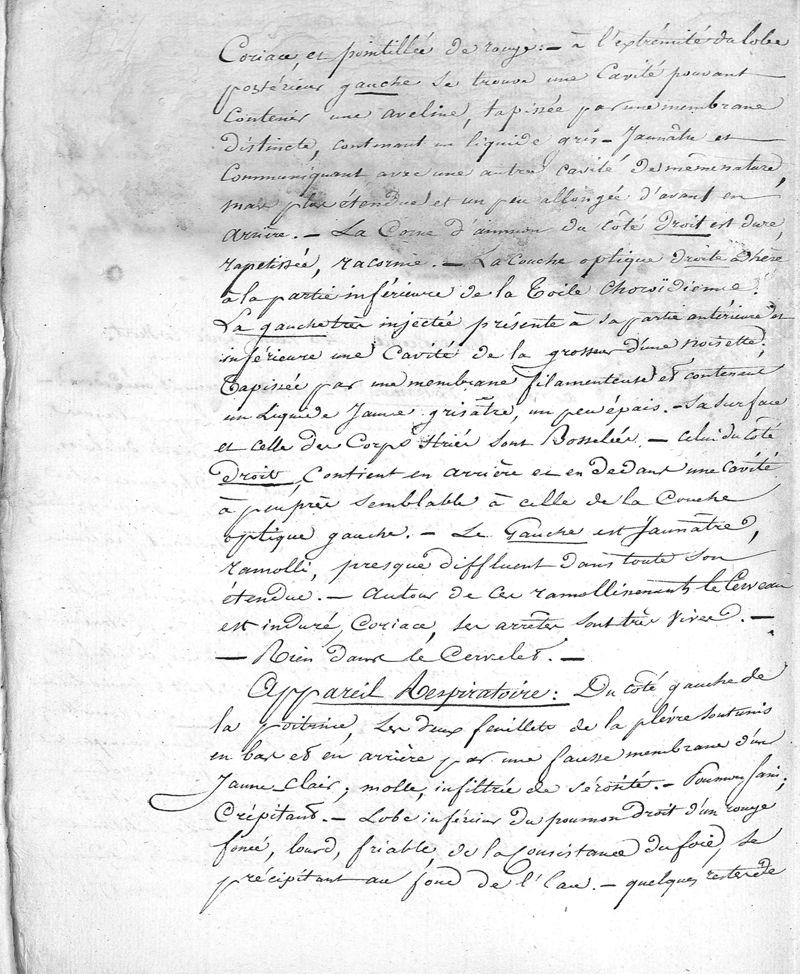 Coriace, et pointillée de rouge: – à l'extrémité du lobe
postérieur gauche se trouve une Cavité pouvant
Contenir une aveline, tapissée par une membrane
distincte, contenant un liquide gris-Jaunâtre et
Communiquant avec une autre cavité de même nature,
mais plus étendue et un peu allongée d'avant en
arrière. – La Corne d'ammon du côté Droit est dure,
rapetissée, racornie. – La couche optique droite adhère
à la partie inférieure de la Toile Choroïdienne.
La gauche très injectée présente à sa partie antérieure et
inférieure une Cavité de la grosseur d'une noisette.
Tapissée par une membrane filamenteuse et contenant
un Liquide Jaune grisâtre, un peu épais. – Sa surface
et celle des Corps Striés sont Bosselées. – Celui du côté
Droit Contient en arrière et en dedans une cavité
à peu près semblable à celle de la Couche
optique gauche. – Le Gauche est Jaunâtre,
ramolli, presque diffluent dans toute son
étendue. – autour de ces ramollissements le Cerveau
est induré, Coriace, ses arrêtes sont très vives. –
– Rien dans le Cervelet. –
Appareil Respiratoire: Du côté gauche de
la poitrine, les deux feuillets de la plèvre sont unis
en bas et en arrière par une fausse membrane d'un
Jaune-clair, molle, infiltrée de sérosité. – Poumon sain,
Crépitant. – Lobe inférieur du poumon Droit d'un rouge
foncé, lourd, friable de la Consistance du foie, se
précipitant au fond de l'Eau. – quelques restes de